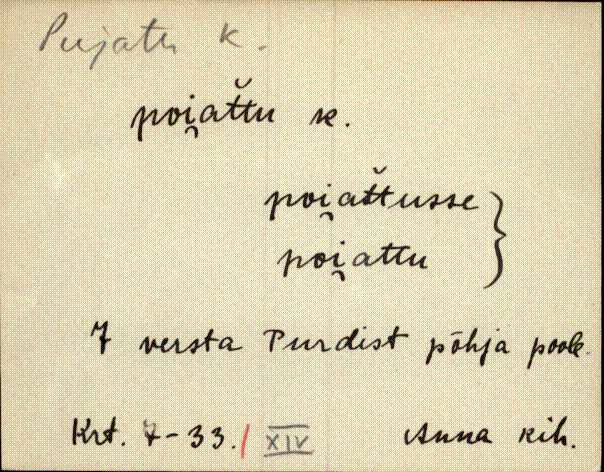 Pujatu k.
poi̯at̆tu k.
poi̯at̆tusse }
poi̯attu
7 versta Purdist põhja poole.
Krt. 7-33./ XIV Anna kih.